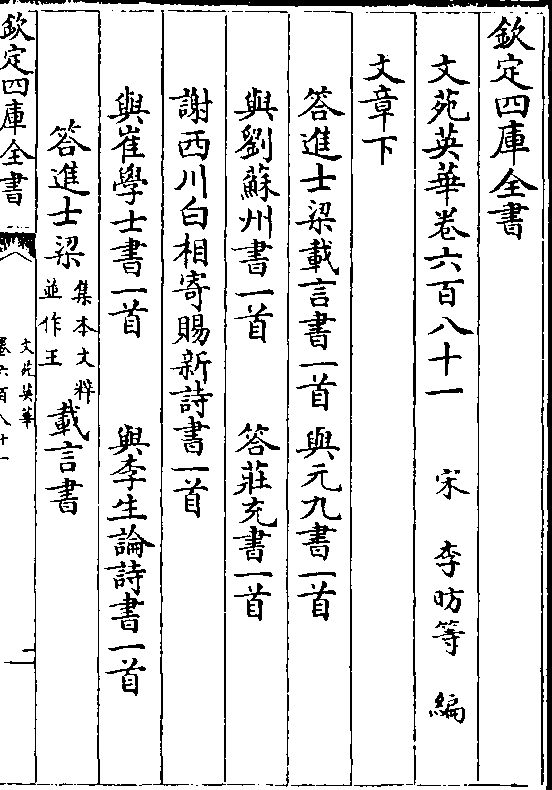 欽定四庫全書
文苑英華卷六百八十一 宋 李昉等 編
文章下
答進士梁載言書一首 與元九書一首
與劉蘇州書一首 答莊充書一首
謝西川白相寄賜新詩書一首
與崔學士書一首 與李生論詩書一首
答進士梁集本文粹並作王載言書
欽定四庫全書 文苑英華 卷六百八十一 一